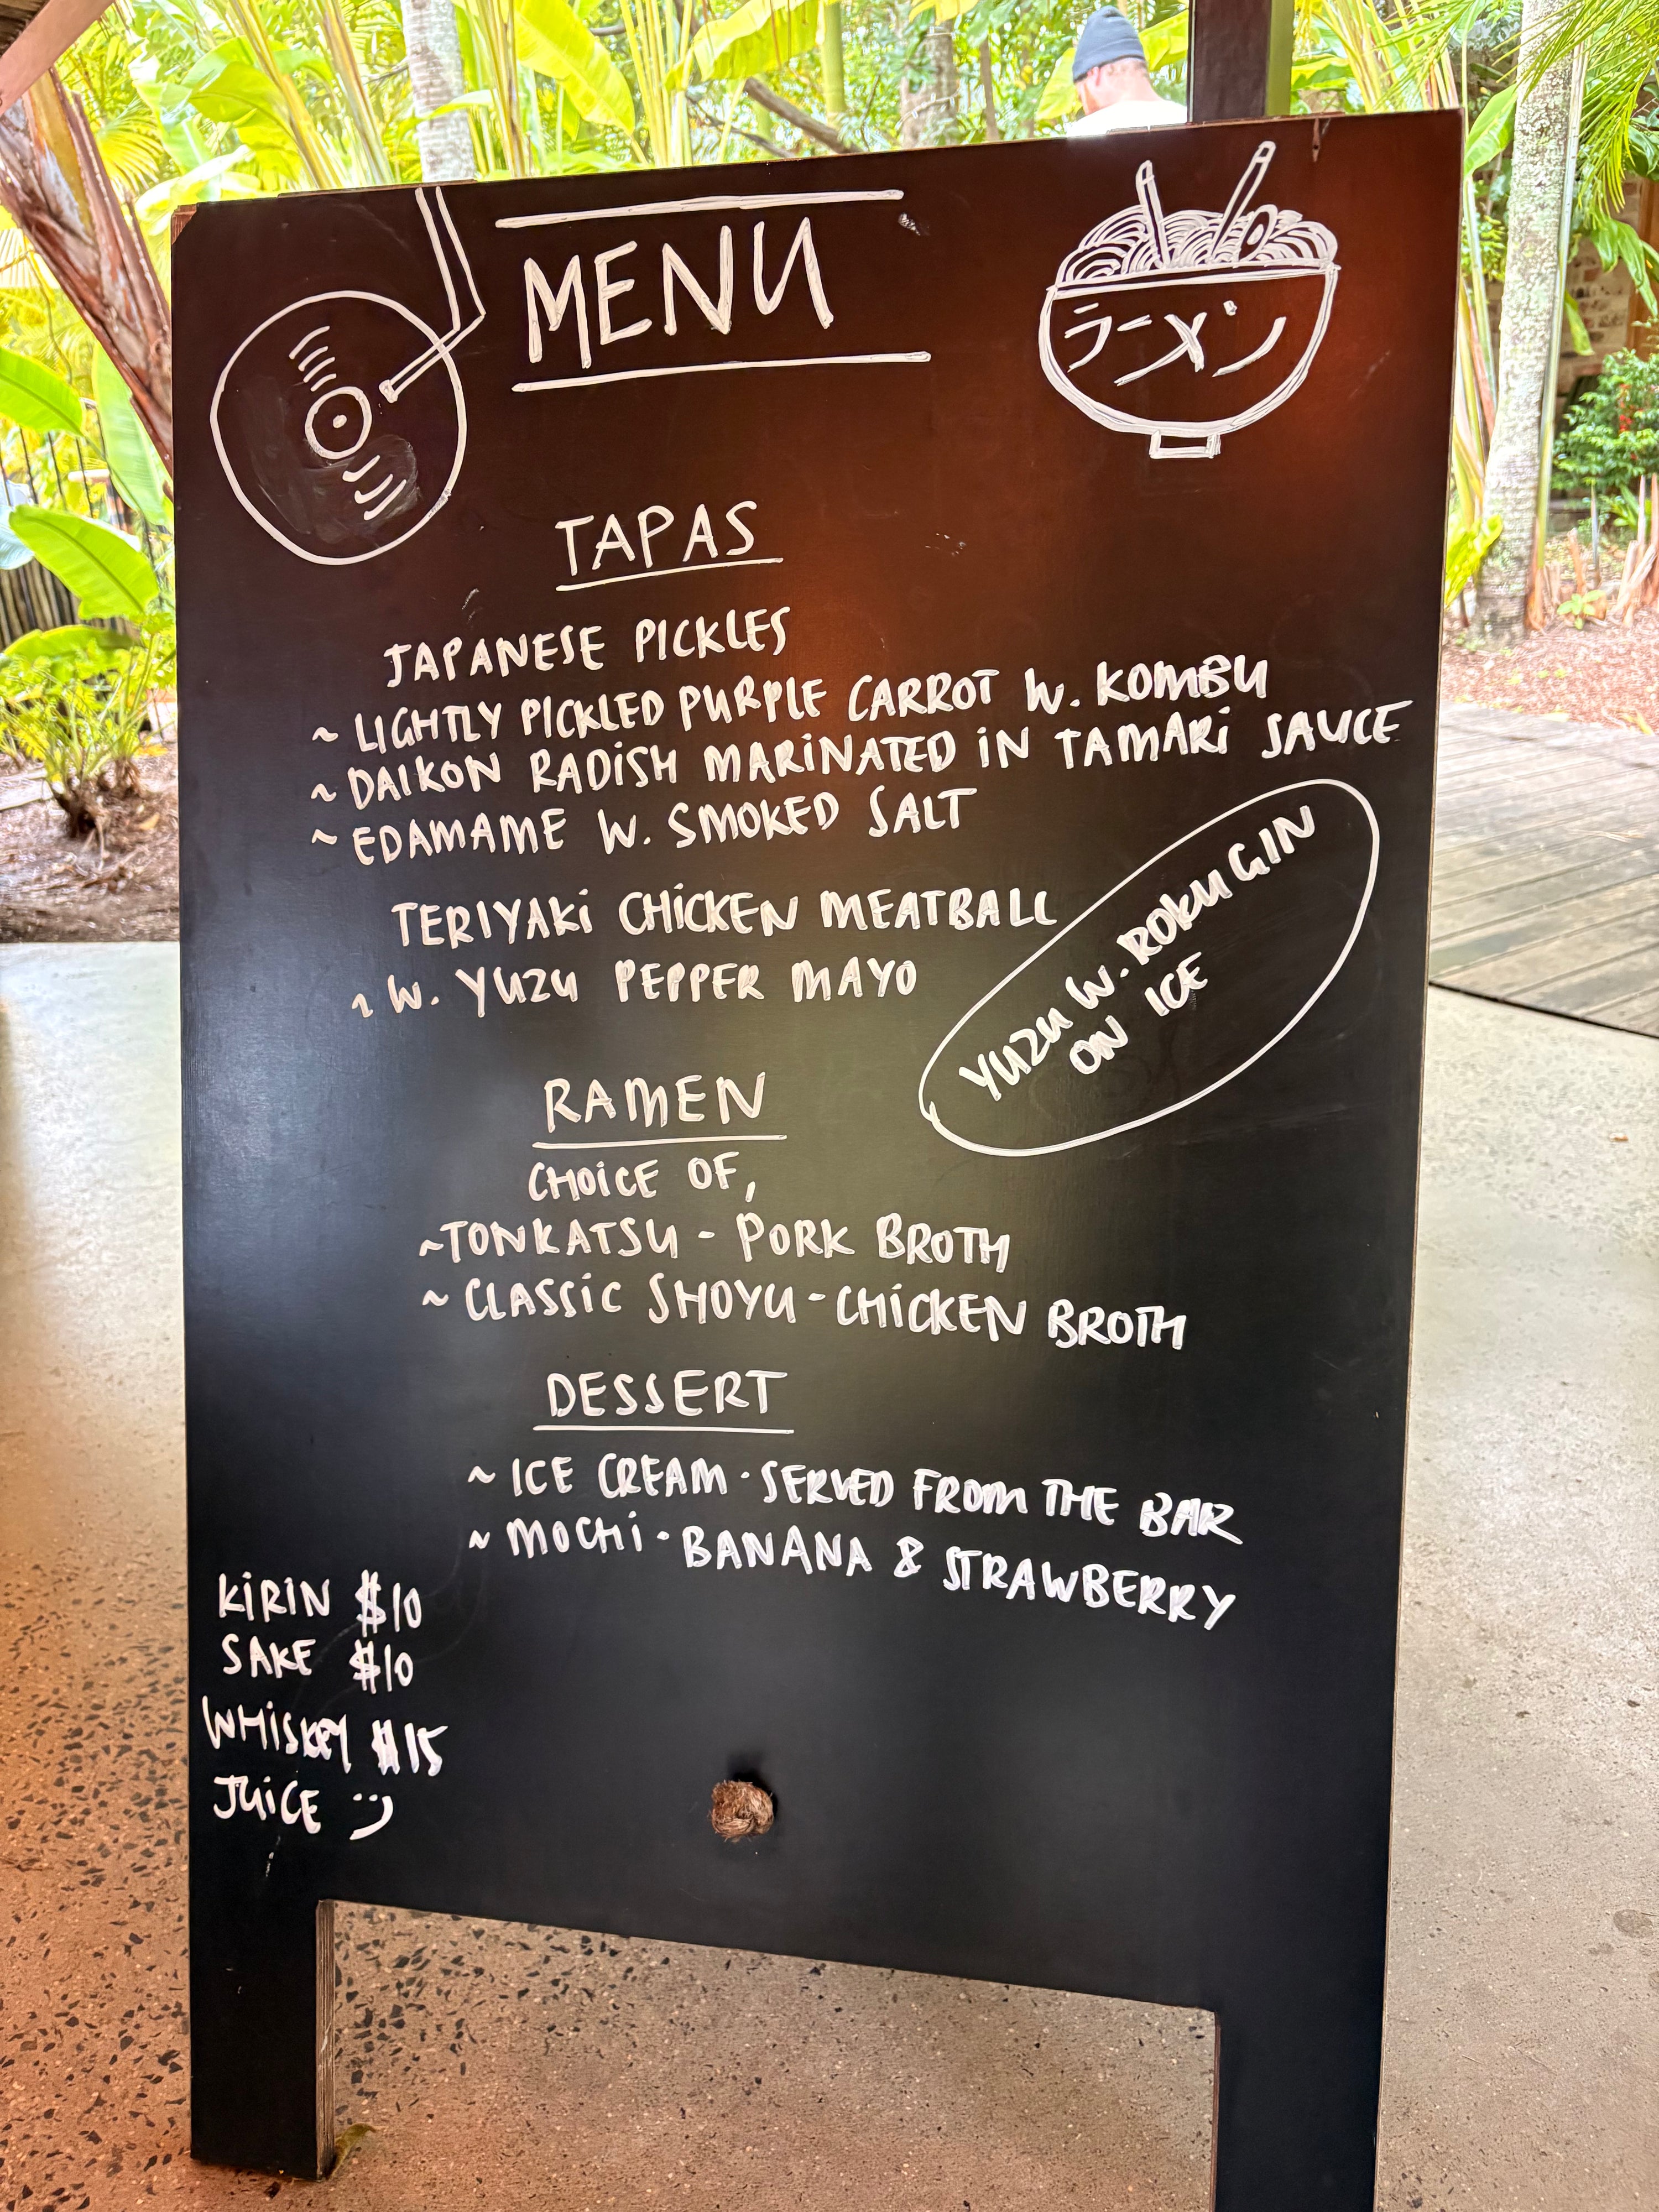 MENU
ラーメン
TAPAS
JAPANESE PICKLES
~ LIGHTLY PICKLED PURPLE CARROT W. KOMBU
~ DAIKON RADISH MARINATED IN TAMARI SAUCE
~ EDAMAME W. SMOKED SALT
TERIYAKI CHICKEN MEATBALL
~ W. YUZU PEPPER MAYO
YUZU W. ROKU GIN
ON ICE
RAMEN
CHOICE OF,
~TONKATSU - PORK BROTH
~ CLASSIC SHOYU - CHICKEN BROTH
DESSERT
~ ICE CREAM - SERVED FROM THE BAR
~ MOCHI - BANANA & STRAWBERRY
KIRIN $10
SAKE $10
WHISKEY $15
JUICE :)